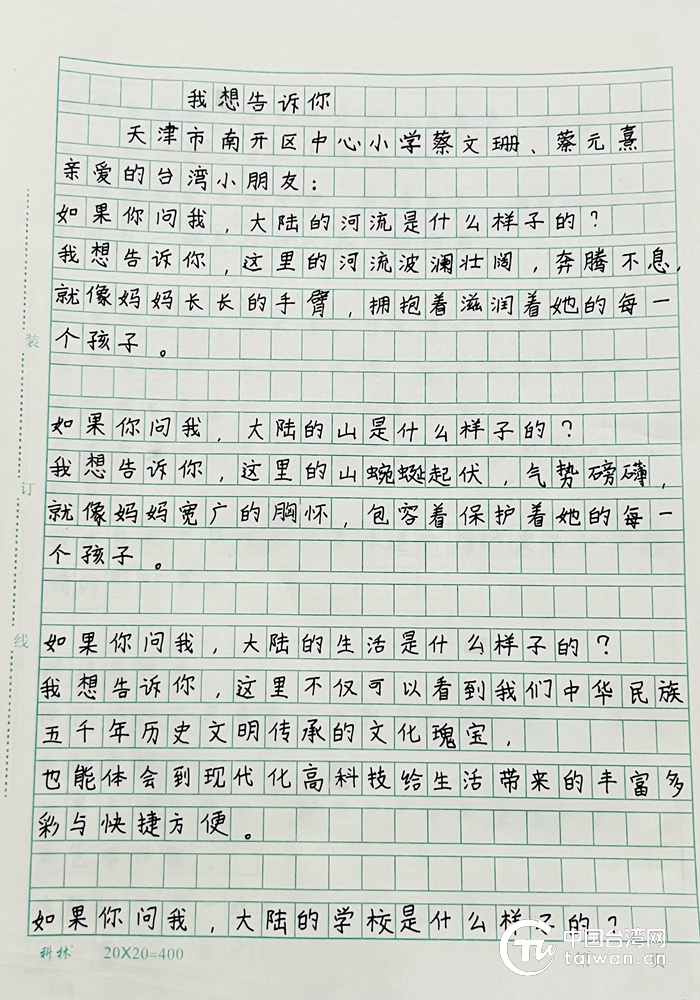 我想告诉你
天津市南开区中心小学蔡文珊、蔡元熹
亲爱的台湾小朋友：
如果你问我，大陆的河流是什么样子的？
我想告诉你，这里的河流波澜壮阔，奔腾不息，
就像妈妈长长的手臂，拥抱着滋润着她的每一
个孩子。
如果你问我，大陆的山是什么样子的？
我想告诉你，这里的山蜿蜒起伏，气势磅礴，
就像妈妈宽广的胸怀，包容着保护着她的每一
个孩子。
如果你问我，大陆的生活是什么样子的？
我想告诉你，这里不仅可以看到我们中华民族
五千年历史文明传承的文化瑰宝，
也能体会到现代化高科技给生活带来的丰富多
彩与快捷方便。
如果你问我，大陆的学校是什么样子的？
装
订
线
科林 20X20=400
第 页
中国台湾网
taiwan.cn